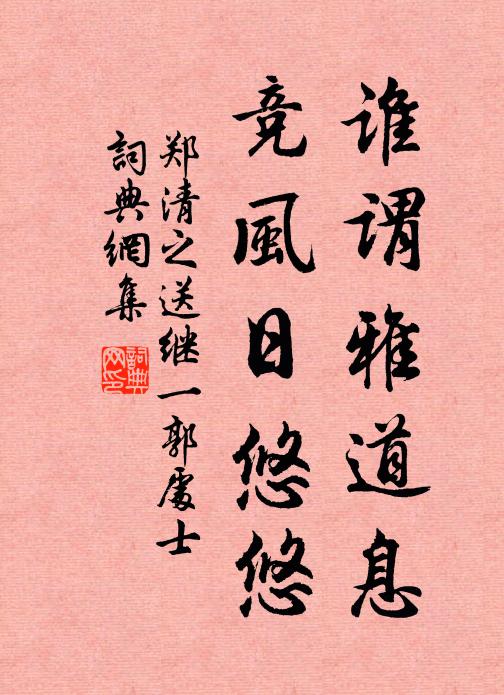 谁谓雅道息
竞風日悠悠
郑清之送继一郭處士
詞典網集
詞典
网印